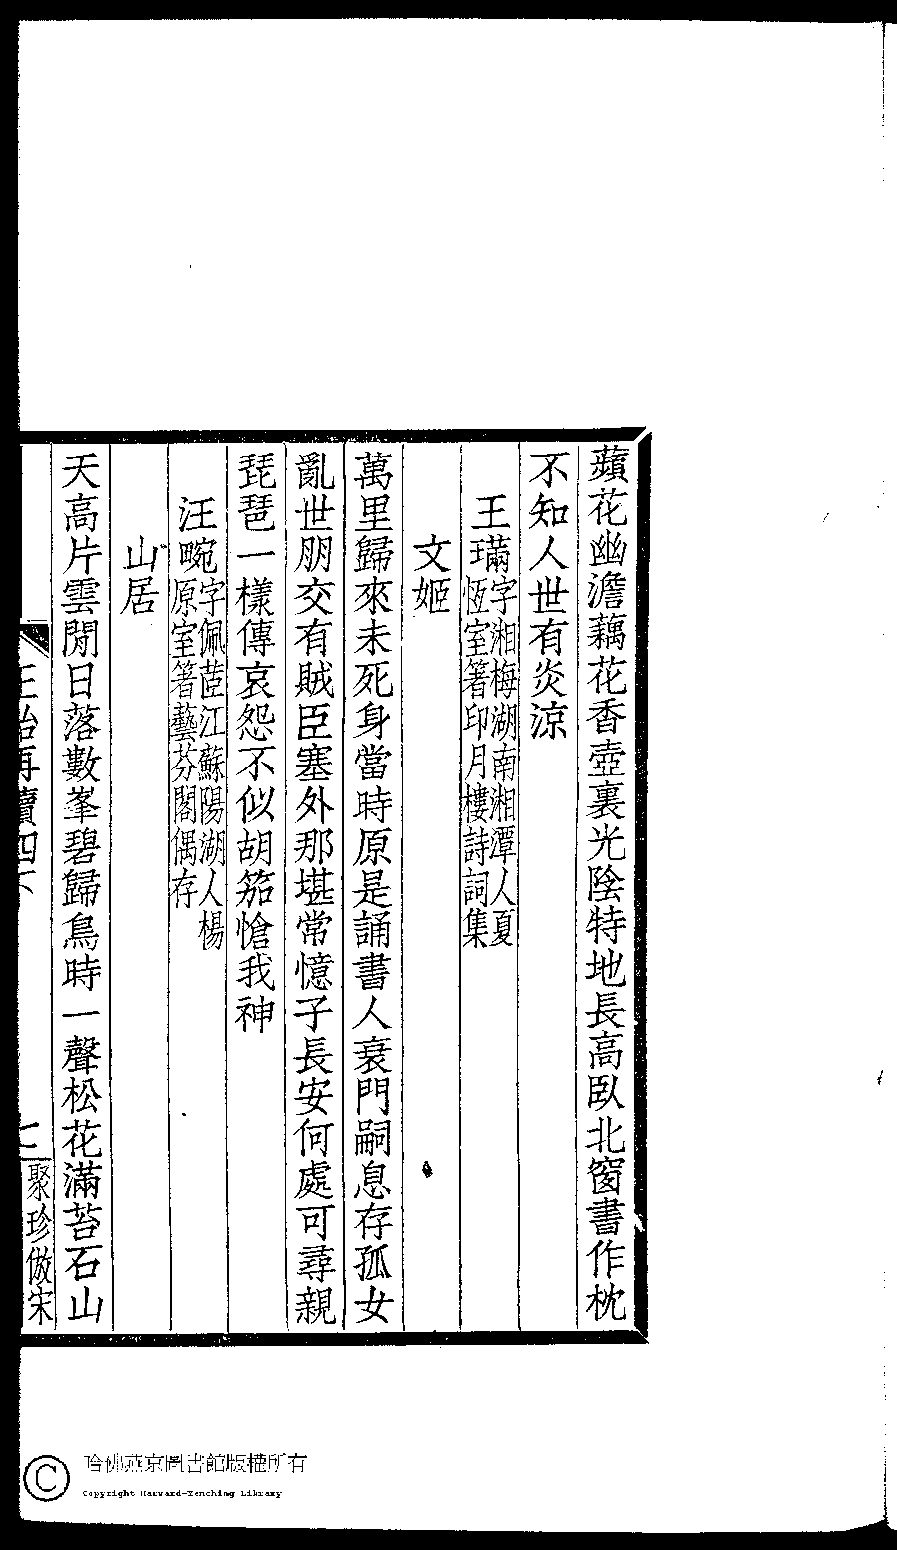 蘋花幽澹藕花香壺裏光陰特地長高臥北窗書作枕
不知人世有炎涼
王璊字湘梅湖南湘潭人夏
恆室箸印月樓詩詞集
文姬
萬里歸來未死身當時原是誦書人衰門嗣息存孤女
亂世朋交有賊臣塞外那堪常憶子長安何處可尋親
琵琶一樣傳哀怨不似胡笳愴我神
汪畹字佩茝江蘇陽湖人楊
原室箸藝芬閣偶存
山居
天高片雲閒日落數峯碧歸鳥時一聲松花滿苔石山
再續四下
聚珍倣宋
哈佛燕京圖書館版權所有
Copyright Harvard-Yenching Library